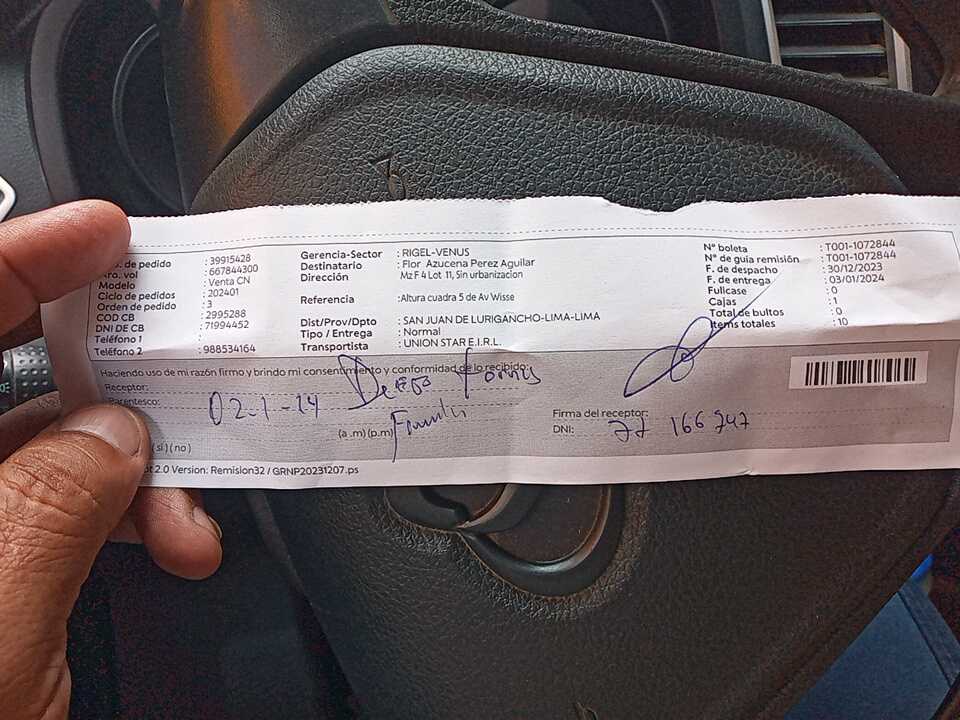 . de pedido : 39915428
Nro. vol : 667844300
Modelo : Venta CN
Ciclo de pedidos : 202401
Orden de pedido : 3
COD CB : 2995288
DNI DE CB : 71994452
Teléfono 1 :
Teléfono 2 : 988534164
Gerencia-Sector : RIGEL-VENUS
Destinatario : Flor Azucena Perez Aguilar
Dirección : Mz F 4 Lot 11, Sin urbanizacion
Referencia : Altura cuadra 5 de Av Wisse
Dist/Prov/Dpto : SAN JUAN DE LURIGANCHO-LIMA-LIMA
Tipo / Entrega : Normal
Transportista : UNION STAR E.I.R.L.
N° boleta : T001-1072844
N° de guia remisión : T001-1072844
F. de despacho : 30/12/2023
F. de entrega : 03/01/2024
Fullcase : 0
Cajas : 1
Total de bultos : 0
Items totales : 10
Haciendo uso de mi razón firmo y brindo mi consentimiento y conformidad de lo recibido:
Receptor:
Parentesco: 02-1-24
(a .m) (p.m)
Firma del receptor:
DNI: 77 166 747
( si ) ( no )
t 2.0 Version: Remision32 / GRNP20231207.ps